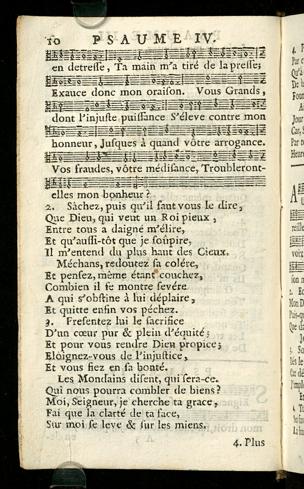 10 PSAUME IV.
en detresse, Ta main m'a tiré de la presse;
Exauce donc mon oraison. Vous Grands,
dont l'injuste puissance S'éleve contre mon
honneur, Jusques à quand vôtre arrogance.
Vos fraudes, vôtre médisance, Troubleront-
elles mon bonheur?
2. Sàchez, puis qu'il faut vous le dire,
Que Dieu, qui veut un Roi pieux,
Entre tous a daigné m'élire,
Et qu'aussi-tôt que je soûpire,
Il m'entend du plus haut des Cieux.
Méchans, redoutez sa colére,
Et pensez, même étant couchez,
Combien il se montre sevére
A qui s'obstine à lui déplaire,
Et quitte enfin vos péchez.
3. Presentez lui le sacrifice
D'un cœur pur & plein d'équité;
Et pour vous rendre Dieu propice;
Eloignez-vous de l'injustice,
Et vous fiez en sa bonté.
Les Mondains disent, qui sera-ce.
Qui nous pourra combler de biens?
Moi, Seigneur, je cherche ta grace,
Fai que la clarté de ta face,
Sur moi se leve & sur les miens.
4. Plus